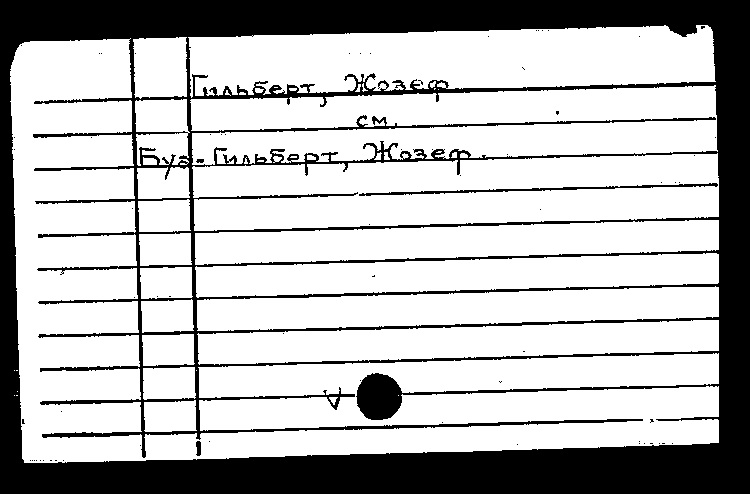 Гильберт, Жозеф
см.
Буз-Гильберт, Жозеф.